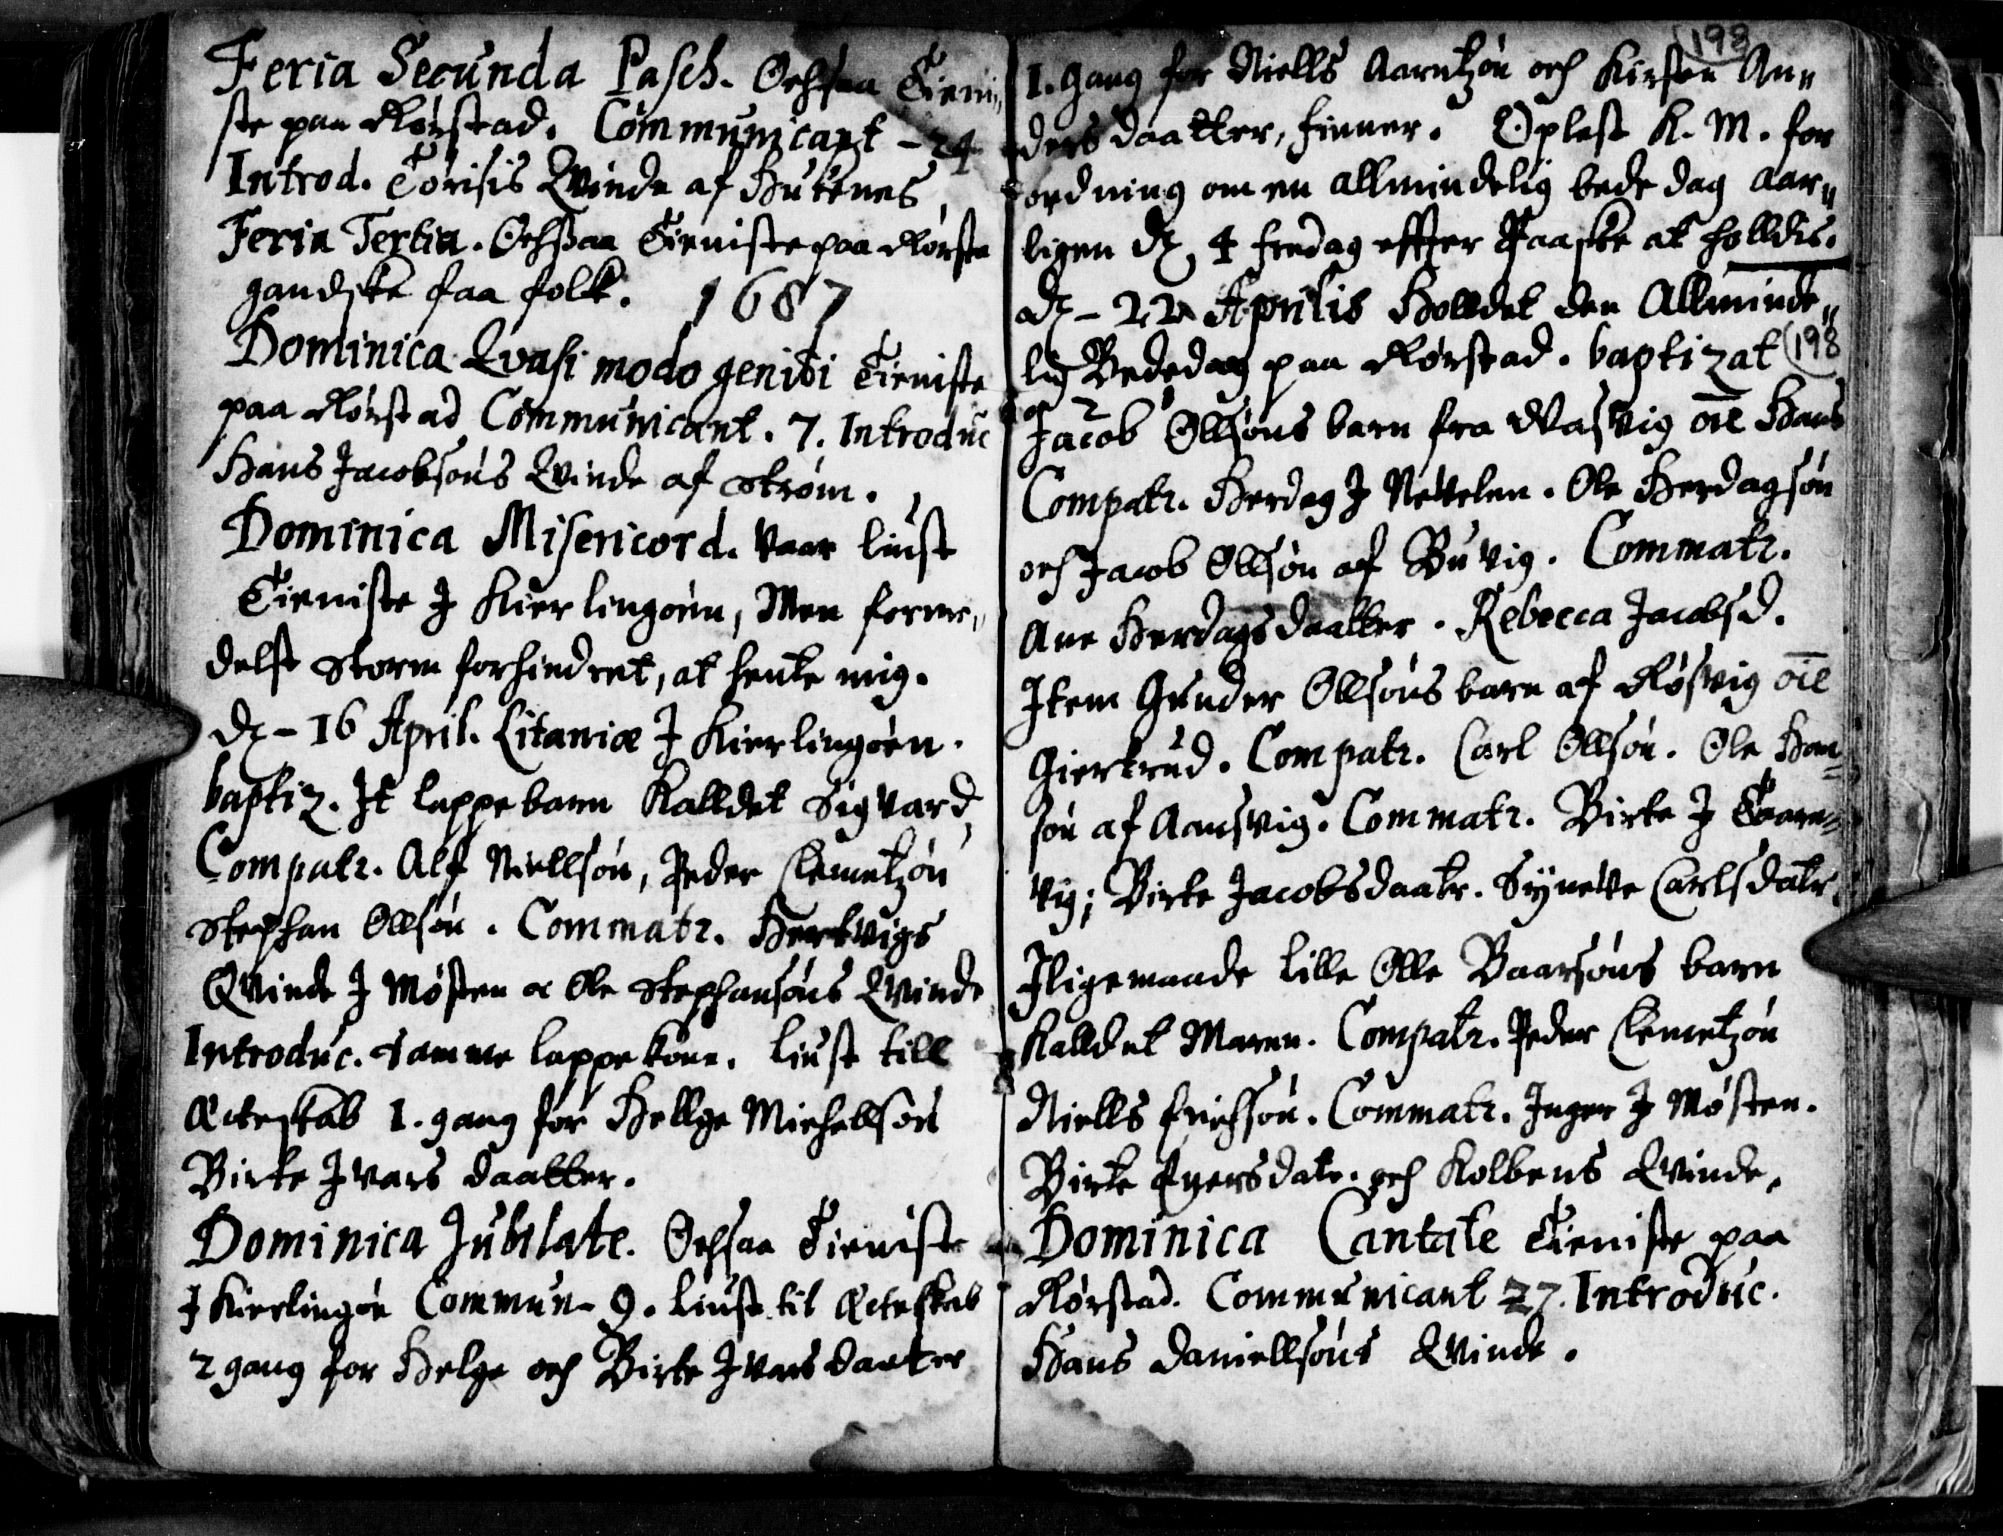 Feria Secunda Pasch. Ochsaa Tieni„
ste paa Rørstad. Communicant - 24
Introd. Torisis Qvinde af Hukenes
Feria Tertia. Ochsaa Tieniste paa Rørsta
gandske faa folk. 1687
Dominica Qvasi modo geniti Tieniste
paa Rørstad Communicant. 7. Introduc
Hans Jacobsøns Qvinde af Strøm.
Dominica Misericord. vaar liust
Tieniste J Kierlingøen, Men forme„
delst Storm forhindret, at hente mig.
D. - 16 April. Litaniæ J Kierlingøen.
baptiz. It lappebarn Kalldet Sigvard
Compatr. Alf Niellsøn, Peder Clemetzøn
Stephan Ollsøn. Commatr. Hertvigs
Qvinde J Møsten oc Ole Stephansøns Qvinde
Introduc. samme lappe kone. liust till
Ecteskab 1. gang for Hellge Michellsøn
Birte Jvars daatter.
Dominica Jubilate. Ochsaa Tieniste
J Kierlingøe Commun - 9. liust til Ecteskab
2 gang for Helge och Birte Jvars daater
198
1. gang for Niells Aarntzøn och Kirsten An„
ders daatter, finner. Oplest K. M. for
ordning om en allmindelig bededag aar„
ligen D. 4 fredag effter Paaske at holldis.
D. - 22 Aprilis Holldet den Allminde„
lig Bededag paa Rørstad. baptizat 198
Jacob Ollsøns barn fra Vasvig oie Hans
Compatr. Herdag J Nevelen. Ole Herdagsøn
och Jacob Ollsøn af Buvig. Commatr.
Ane Herdags daatter. Rebecca Jacobsd.
Item Gunder Ollsøns barn af Røsvig oie
Giertrud. Compatr. Carl Ollsøn. Ole Han„
søn af Aansvig. Commatr. Birte J Taarn„
vig; Birte Jacobsdaatr. Synneve Carlsdatr.
Jligemaade lille Olle Baarsøns barn
Kalldet Maren. Compatr. Peder Clemetzøn
Niells Erichsøn. Commatr. Inger J Møsten.
Birte Eyersdatr. och Kolbens Qvinde.
Dominica Cantate Tieniste paa
Rørstad. Communicant 27. Introduc.
Hans Daniellsøns Qvinde.